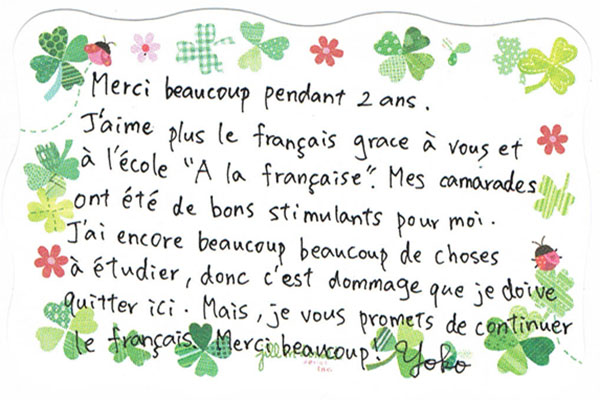 Merci beaucoup pendant 2 ans.
J'aime plus le français grace à vous et
à l'école "A la française". Mes camarades
ont été de bons stimulants pour moi.
J'ai encore beaucoup beaucoup de choses
à étudier, donc c'est dommage que je doive
quitter ici. Mais, je vous promets de continuer
le français. Merci beaucoup! Yoko